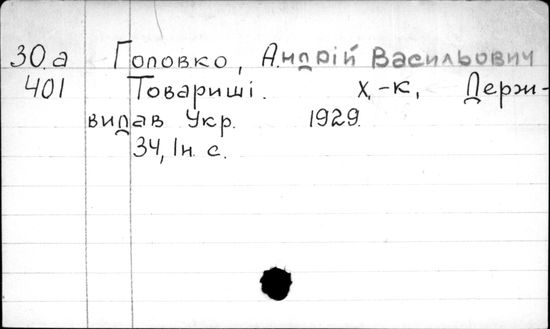 30.а Головко, Андрій Васильович
401 Товариші. Х.-К., Держ-
видав Укр. 1929.
34, Iн. с.